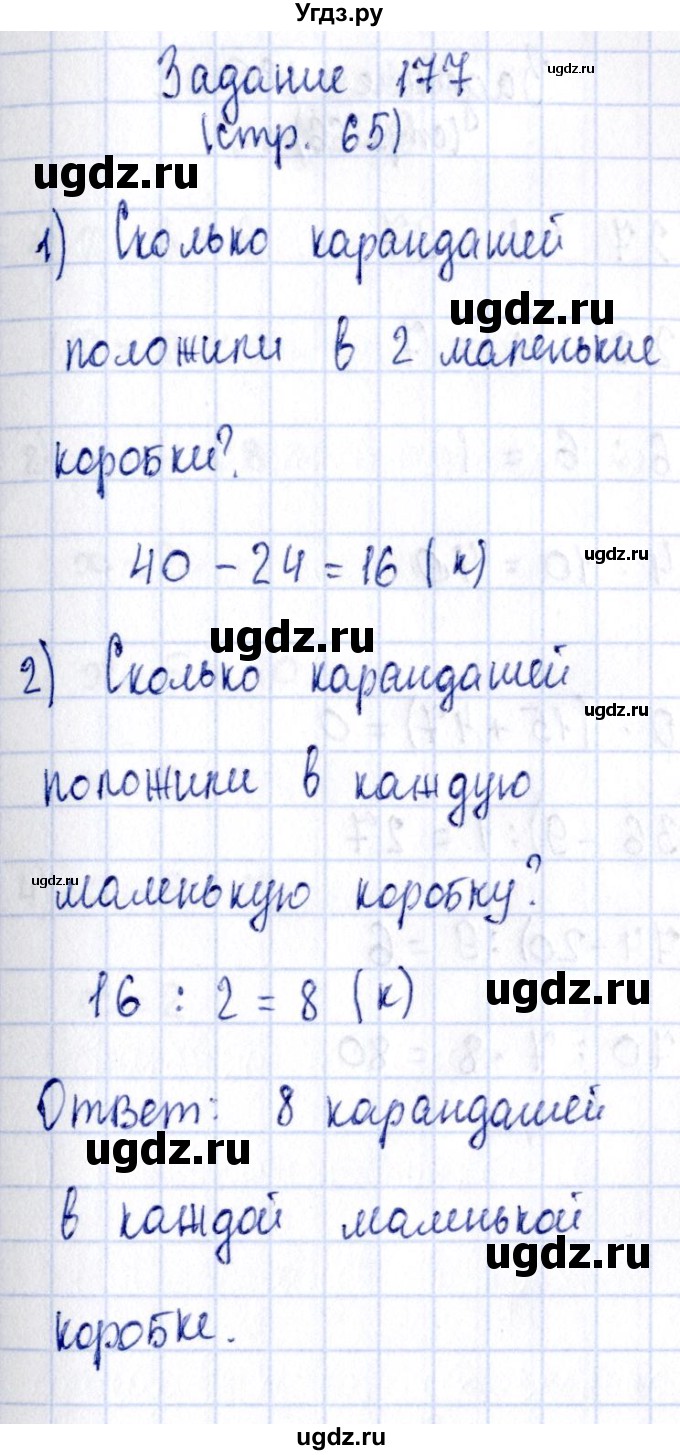 Угдз.ру
Задание 177
ugdz.ru
(стр. 65)
ugdz.ru
1) Сколько карандашей
ugdz.ru
положили в 2 маленькие
коробки?
40 - 24 = 16 (к)
ugdz.ru
ugdz.ru
2) Сколько карандашей
ugdz.ru
положили в каждую
ugdz.ru
маленькую коробку?
16 : 2 = 8 (к)
ugdz.ru
Ответ: 8 карандашей
ugdz.ru
в каждой маленькой
ugdz.ru
коробке.
ugdz.ru